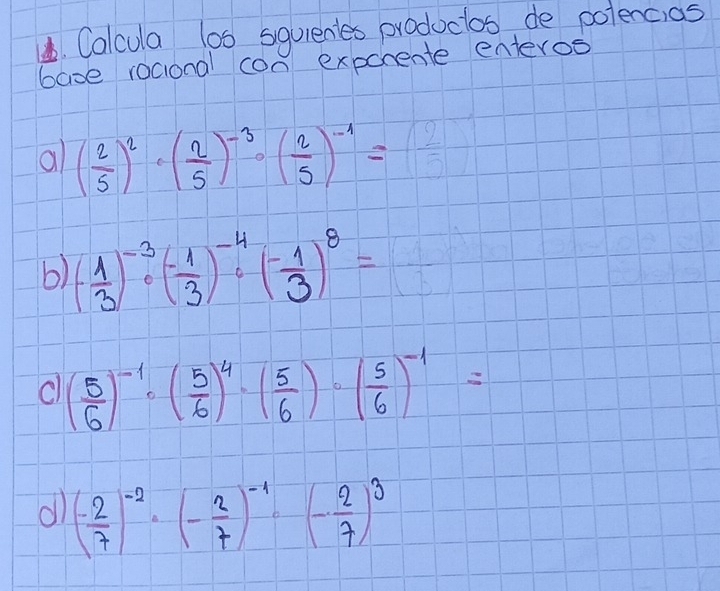 1. Calcula los siguientes productos de potencias
base racional con exponente enteros
a) (2/5)^2 · (2/5)^-3 · (2/5)^-1 = (2/5)
b) (-1/3)^-3 · (-1/3)^-4 · (-1/3)^8 =
c) (5/6)^-1 · (5/6)^4 · (5/6) · (5/6)^-1 =
d) (-2/7)^-2 · (-2/7)^-1 · (-2/7)^3